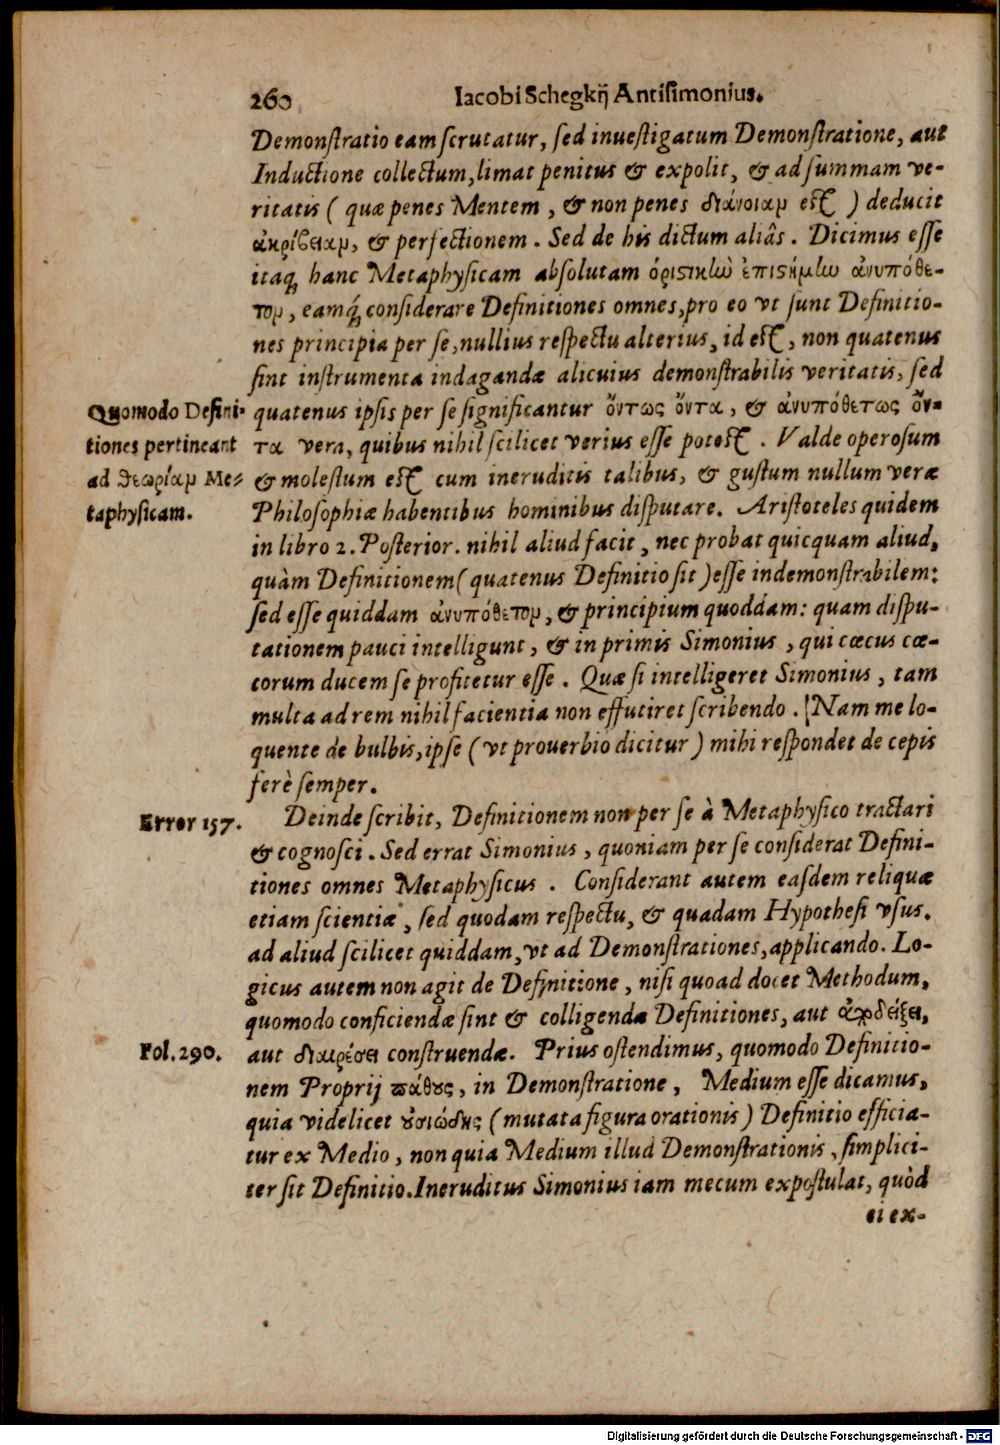 260 Iacobi Schegkij Antisimonius.
Demonstratio eam scrutatur, sed inuestigatum Demonstratione, aut
Inductione collectum, limat penitus & expolit, & ad summam ve-
ritatis ( quæ penes Mentem, & non penes διάνοιαμ est ) deducit
ακρίβειαμ, & perfectionem. Sed de his dictum aliâs. Dicimus esse
itaq; hanc Metaphysicam absolutam ὁριστικὼ ἐπιστήμω ἀνυπόθε-
τομ, eamq́; considerare Definitiones omnes, pro eo vt sunt Definitio-
nes principia per se, nullius respectu alterius, id est, non quatenus
sint instrumenta indagandæ alicuius demonstrabilis veritatis, sed
Quomodo Defini-
tiones pertineant
ad θεωρίαμ Me-
taphysicam.
quatenus ipsis per se significantur ὄντως ὄντα, & ἀνυπόθετως ὄν-
τα vera, quibus nihil scilicet verius esse potest. Valde operosum
& molestum est cum ineruditis talibus, & gustum nullum veræ
Philosophiæ habentibus hominibus disputare. Aristoteles quidem
in libro 2. Posterior. nihil aliud facit, nec probat quicquam aliud,
quàm Definitionem ( quatenus Definitio sit ) esse indemonstrabilem:
sed esse quiddam ἀνυπόθετομ, & principium quoddam: quam dispu-
tationem pauci intelligunt, & in primis Simonius, qui cæcus cæ-
corum ducem se profitetur esse. Quæ si intelligeret Simonius, tam
multa ad rem nihil facientia non effutiret scribendo. Nam me lo-
quente de bulbis, ipse ( vt prouerbio dicitur ) mihi respondet de cepis
ferè semper.
Error 157.
Deinde scribit, Definitionem non per se à Metaphysico tractari
& cognosci. Sed errat Simonius, quoniam per se considerat Defini-
tiones omnes Metaphysicus. Considerant autem easdem reliquæ
etiam scientiæ, sed quodam respectu, & quadam Hypothesi vsus.
ad aliud scilicet quiddam, vt ad Demonstrationes, applicando. Lo-
gicus autem non agit de Definitione, nisi quoad docet Methodum,
quomodo conficiendæ sint & colligendæ Definitiones, aut
Fol. 290.
aut διαιρέσει construendæ. Prius ostendimus, quomodo Definitio-
nem Proprij πάθους, in Demonstratione, Medium esse dicamus,
quia videlicet οὐσιώδης ( mutata figura orationis ) Definitio efficia-
tur ex Medio, non quia Medium illud Demonstrationis, simplici-
ter sit Definitio. Ineruditus Simonius iam mecum expostulat, quòd
ei ex-
Digitalisierung gefördert durch die Deutsche Forschungsgemeinschaft - DFG